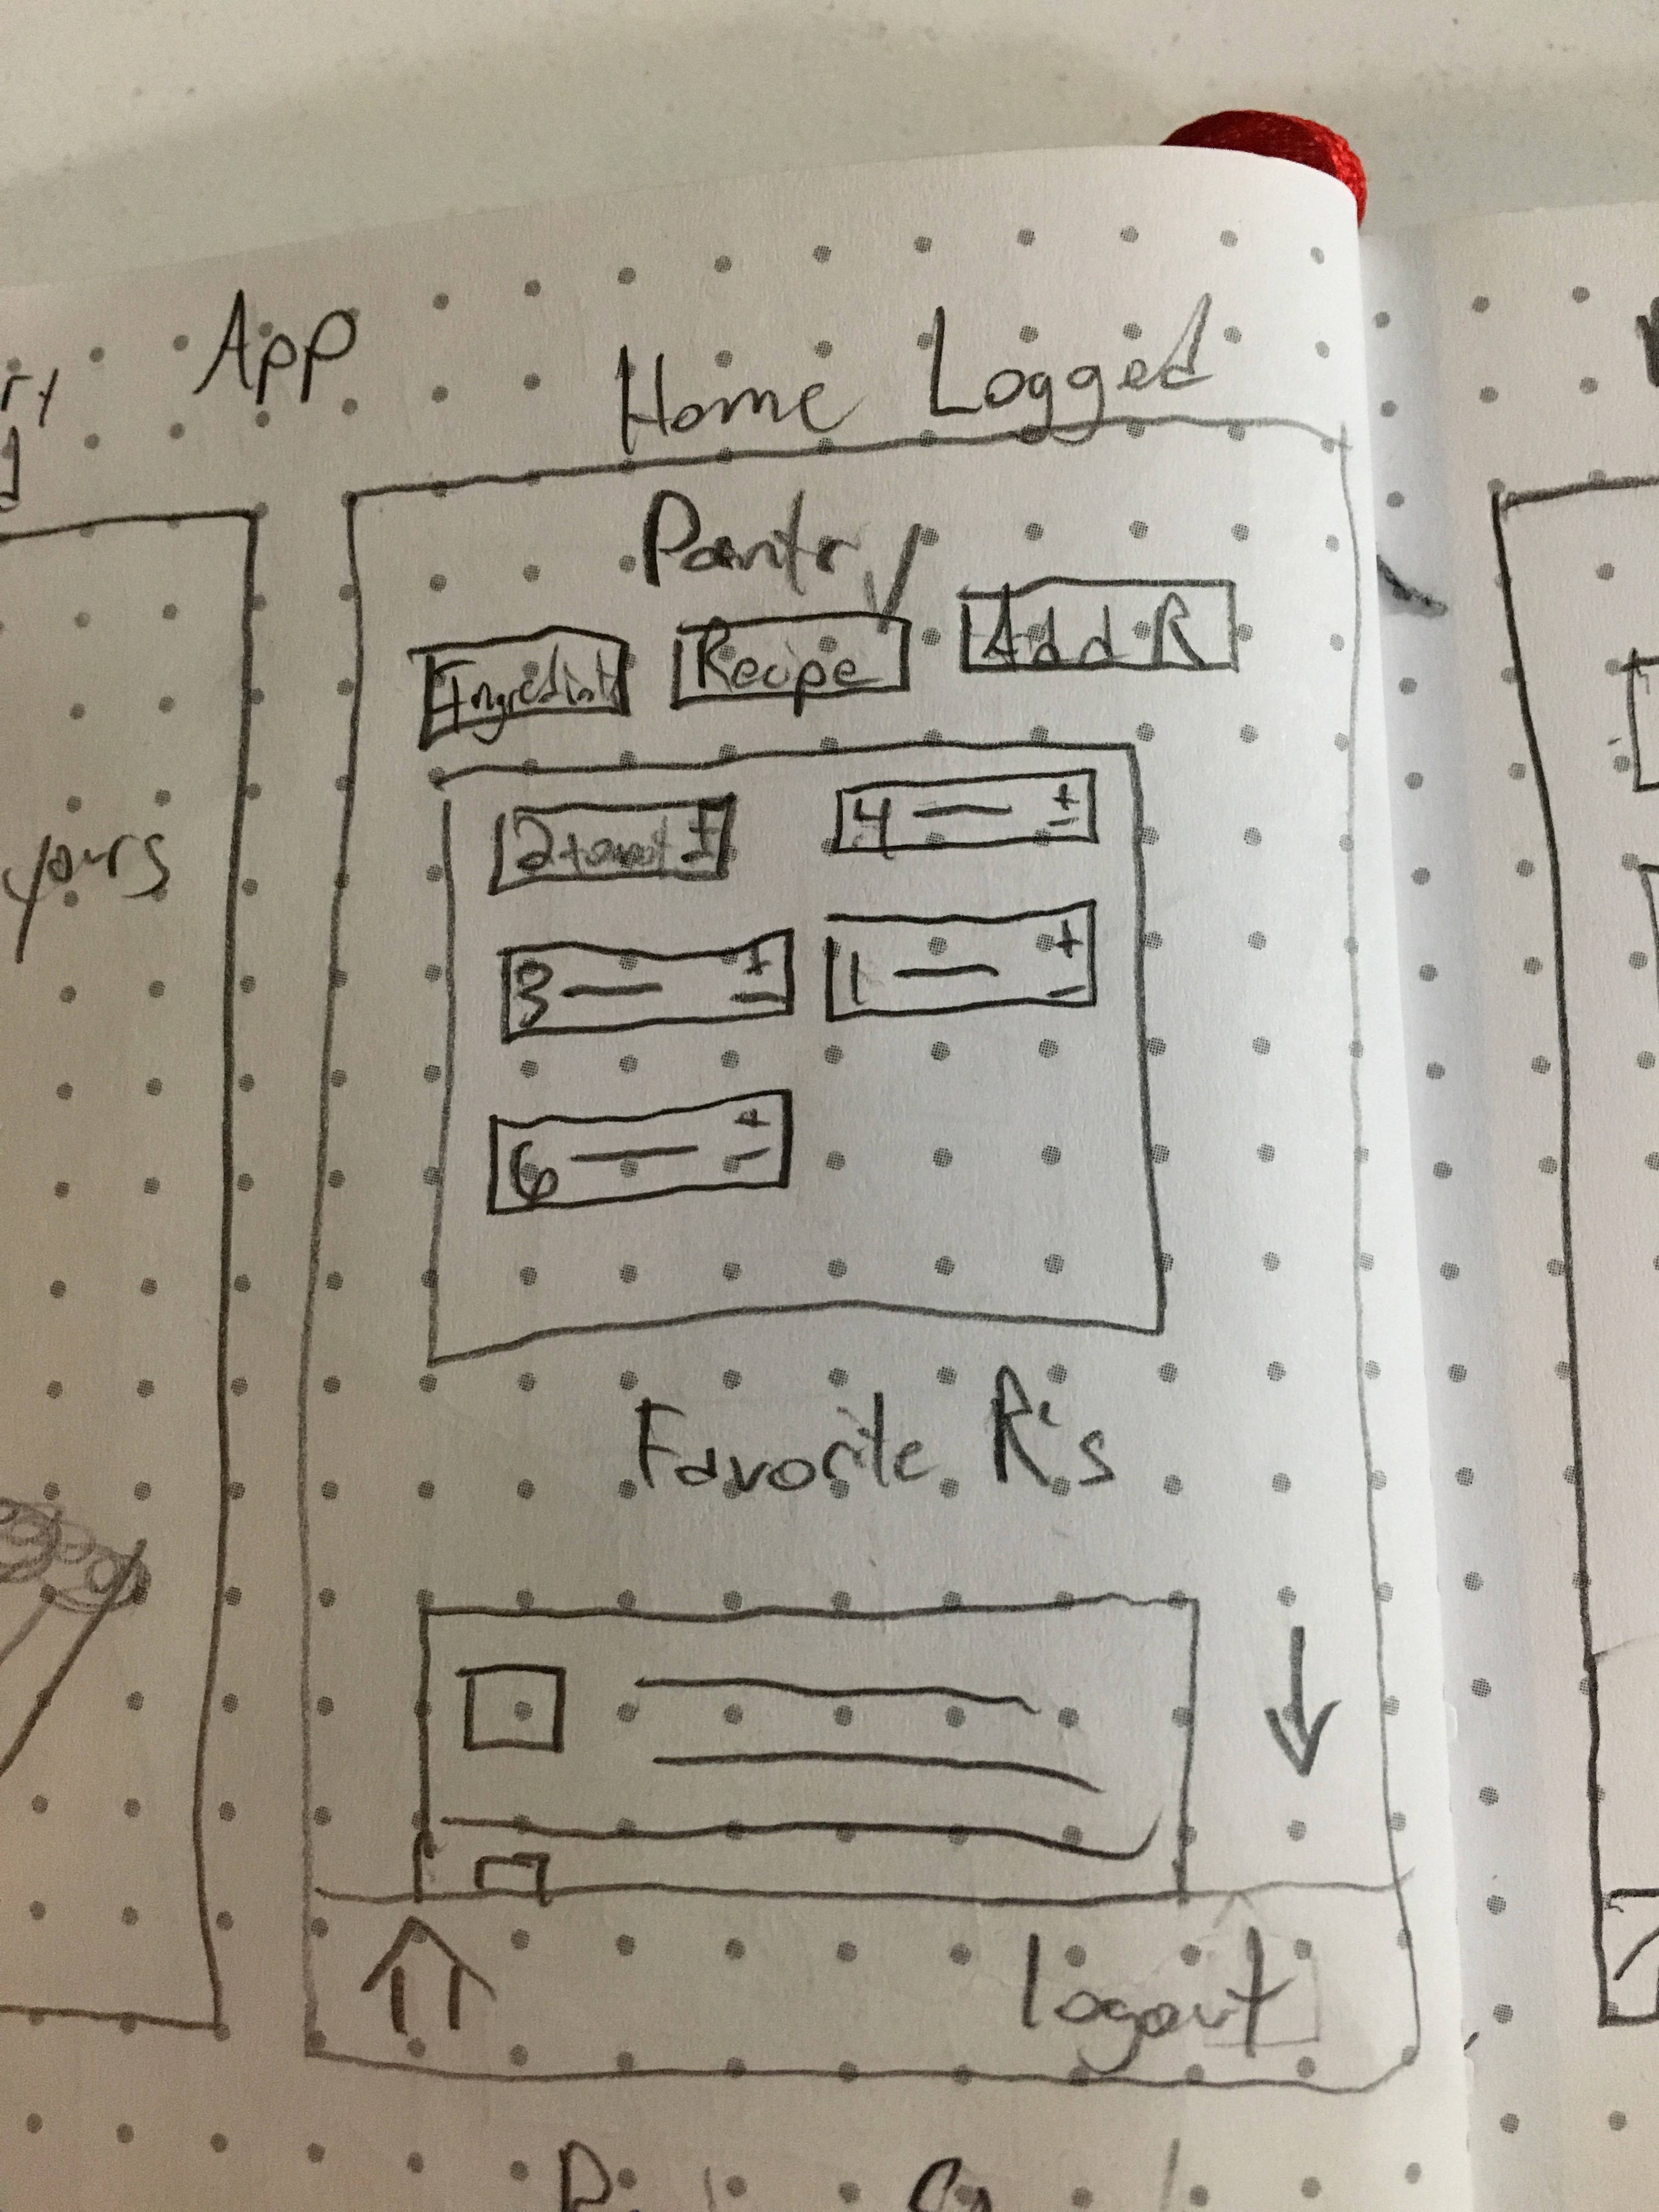 App
Home Logged
Pantry
Ingredients
Recipe
Add R
2 tomat ±
4 +
-
3 +
-
1 +
-
6 +
-
yours
Favorite R's
logout